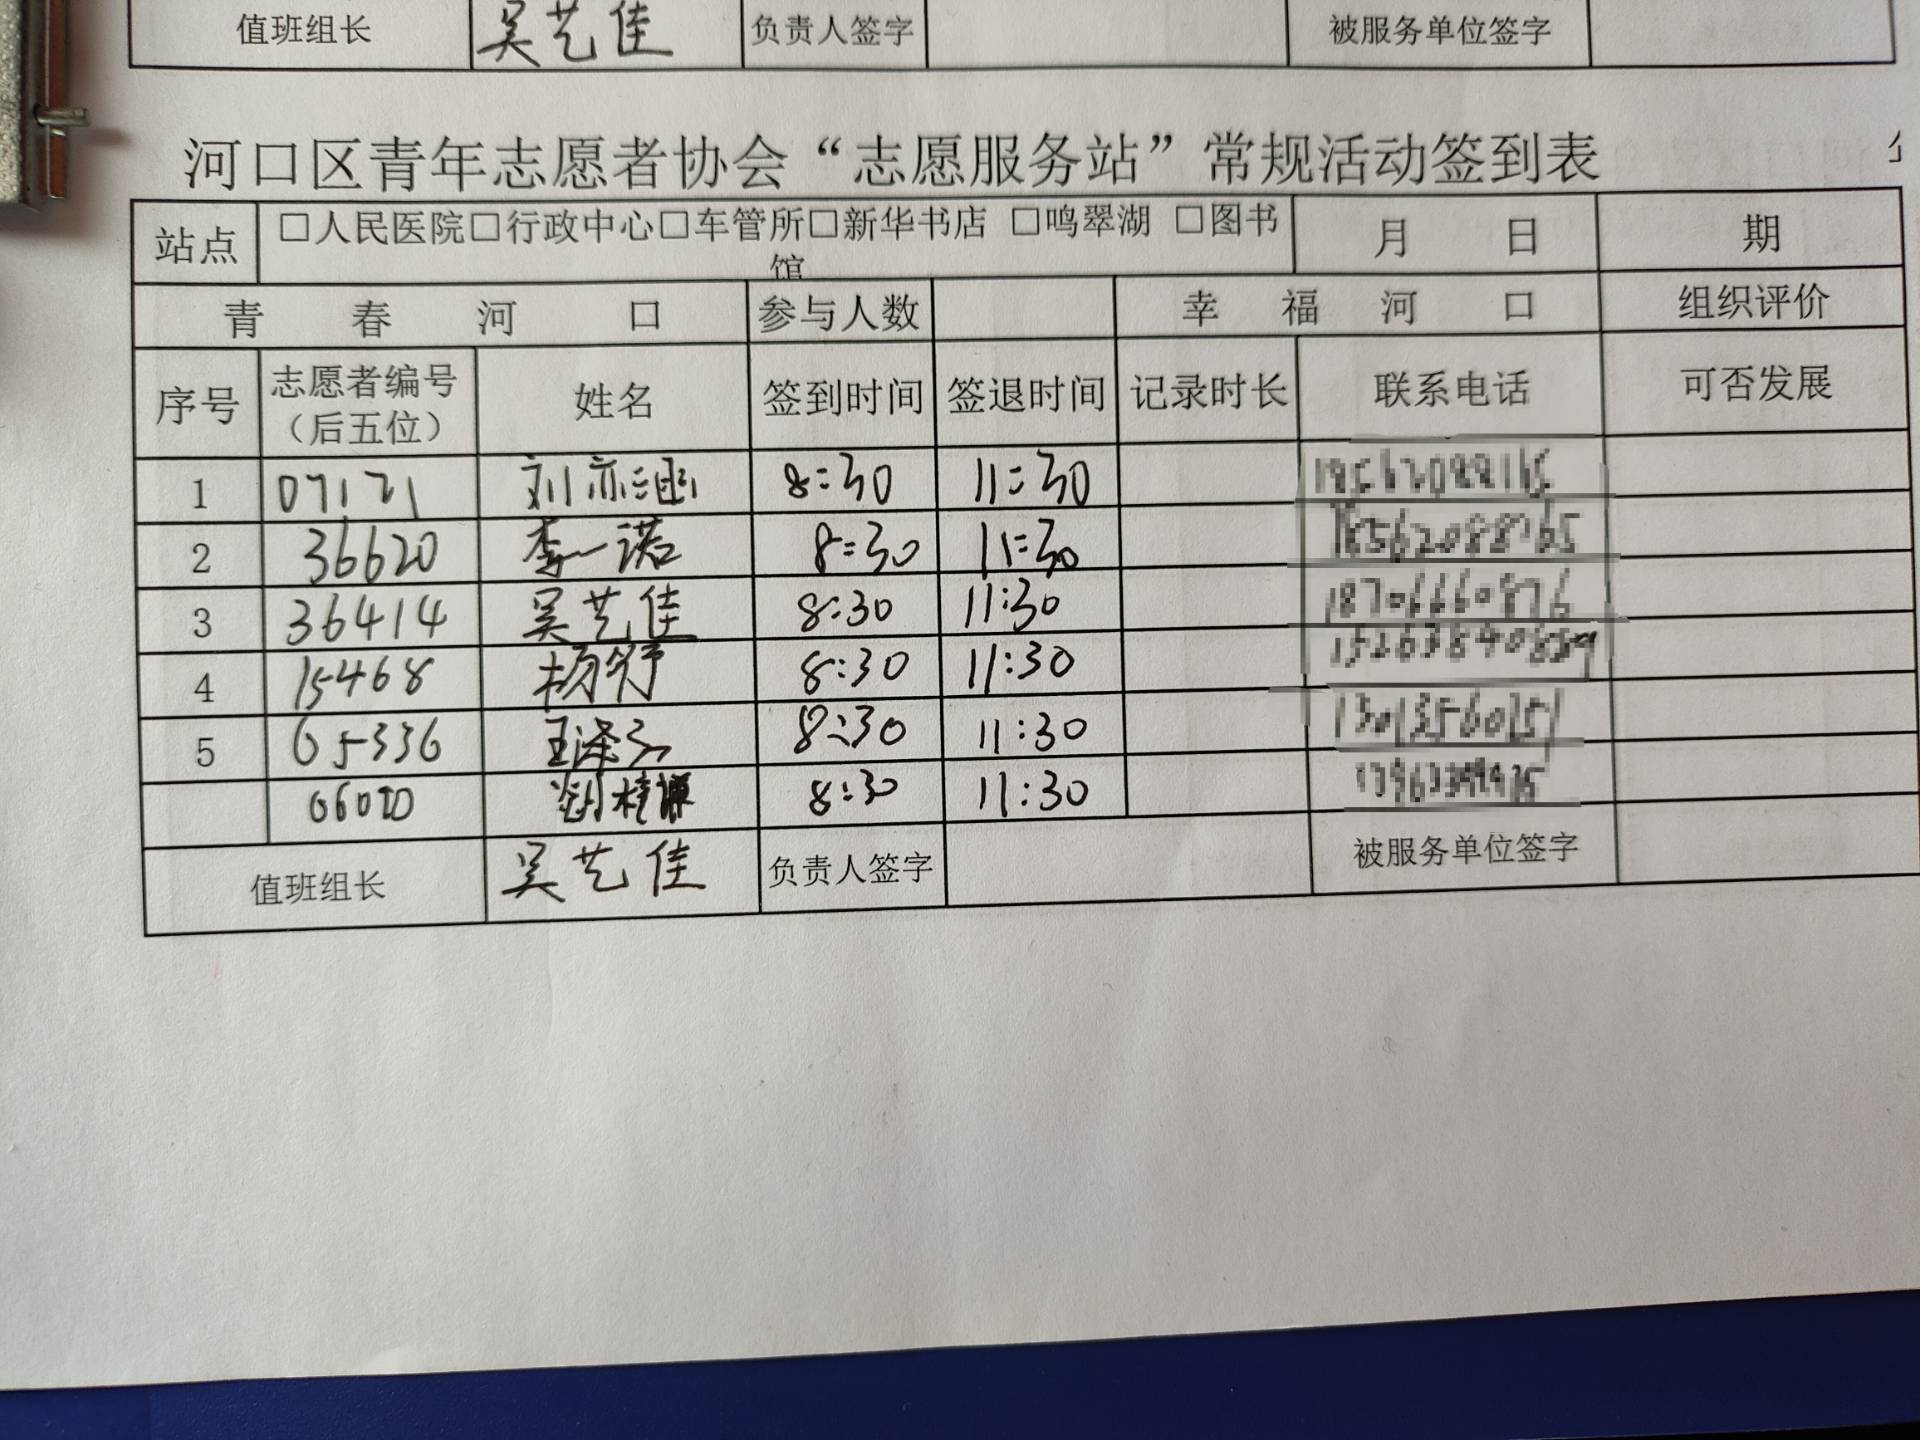 值班组长 吴艺佳 负责人签字 被服务单位签字
河口区青年志愿者协会“志愿服务站”常规活动签到表
站点 □人民医院□行政中心□车管所□新华书店 □鸣翠湖 □图书馆 月 日 期
青 春 河 口 参与人数 幸 福 河 口 组织评价
序号 志愿者编号（后五位） 姓名 签到时间 签退时间 记录时长 联系电话 可否发展
1 07121 刘亦涵 8:30 11:30
2 36620 李一诺 8:30 11:30
3 36414 吴艺佳 8:30 11:30
4 15468 8:30 11:30
5 65336 8:30 11:30
8:30 11:30
值班组长 吴艺佳 负责人签字 被服务单位签字